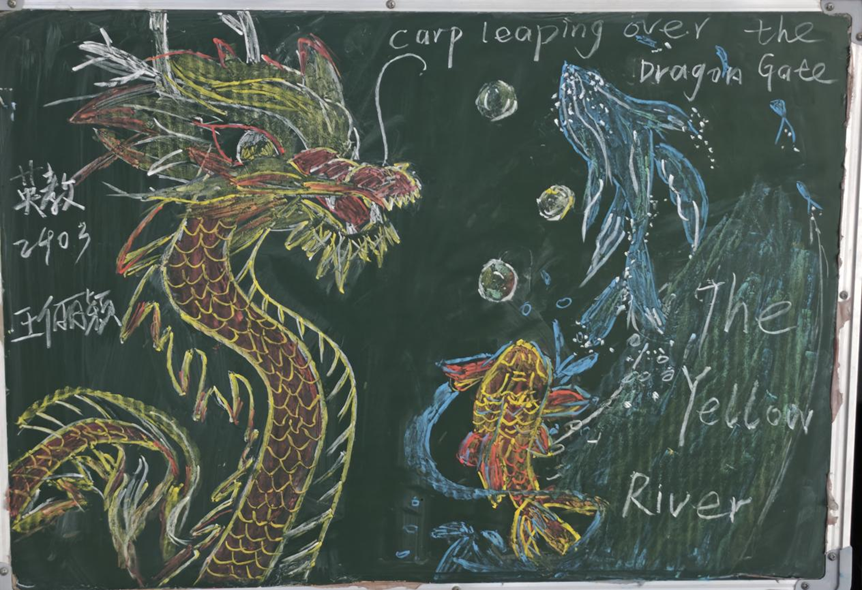 carp leaping over the
Dragon Gate
英教
2403
王俪颖
The
Yellow
River